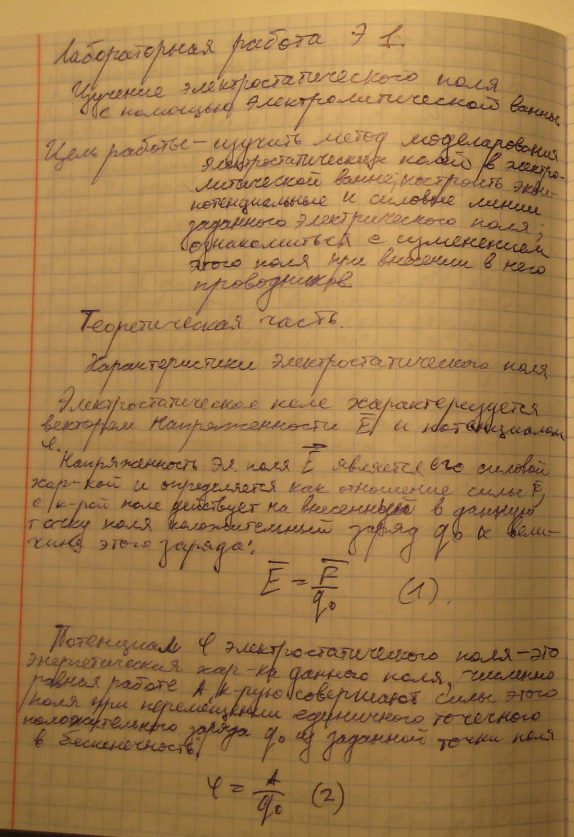 Лабораторная работа Э 1.
Изучение электростатического поля
с помощью электролитической ванны
Цель работы - изучить метод моделирования
электростатических полей в электро-
литической ванне; построить экви-
потенциальные и силовые линии
заданного электрического поля;
ознакомиться с изменением
этого поля при внесении в него
проводников
Теоретическая часть.
Характеристики электростатического поля
Электростатическое поле характеризуется
вектором напряженности E и потенциалом
φ.
Напряженность эл. поля E является его силовой
хар-кой и определяется как отношение силы F,
с к-рой поле действует на внесенный в данную
точку поля положительный заряд q₀ к вели-
чине этого заряда:
E = F/q₀ (1).
Потенциал φ электростатического поля - это
энергетическая хар-ка данного поля, численно
равная работе A, к-рую совершают силы этого
поля при перемещении единичного точечного
положительного заряда q₀ из заданной точки поля
в бесконечность:
φ = A/q₀ (2)